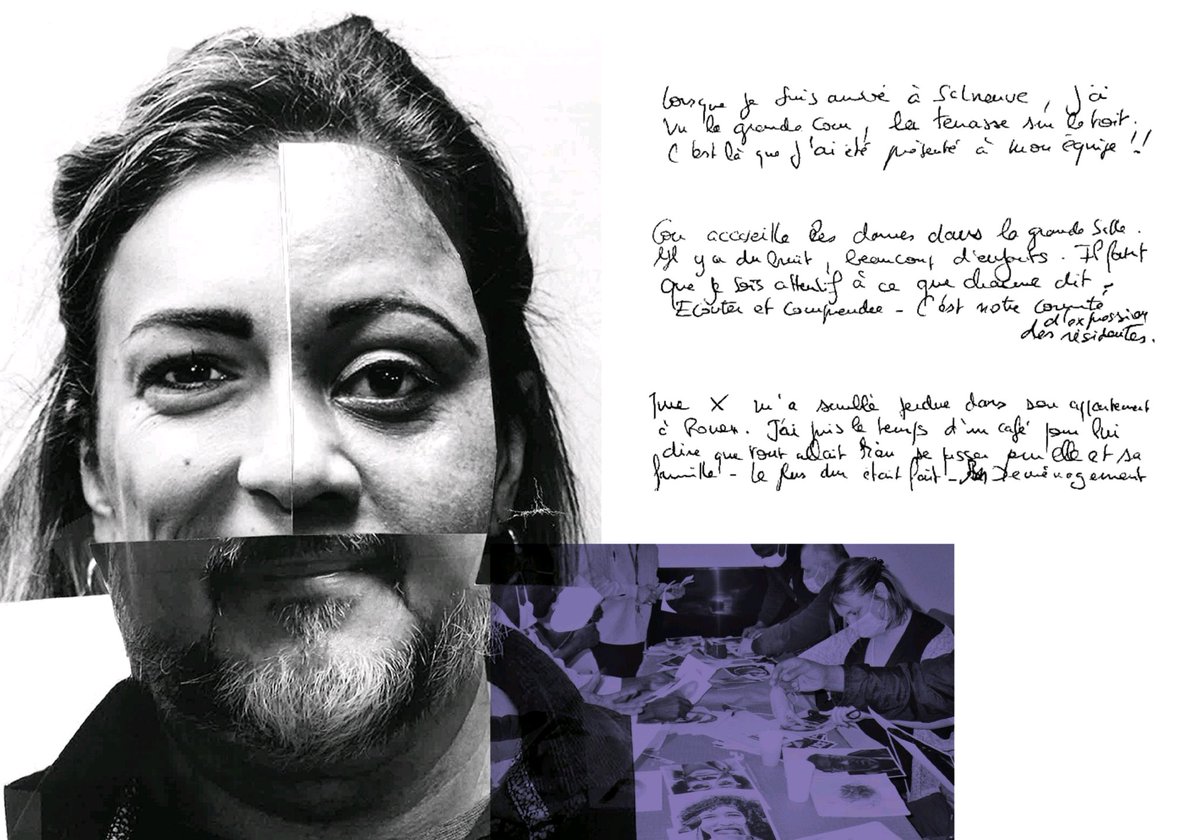 Lorsque je suis arrivé à Salneuve, j'ai
vu la grande cour, la terrasse sur le toit.
C'est là que j'ai été présenté à mon équipe !!
On accueille les dames dans la grande salle.
Il y a du bruit, beaucoup d'enfants. Il faut
que je sois attentif à ce que chacune dit.
Ecouter et comprendre - C'est notre comité
d'expression
des résidentes.
Mme X m'a semblé perdue dans son appartement
à Rouen. J'ai pris le temps d'un café pour lui
dire que tout allait bien se passer pour elle et sa
famille - Le plus dur était fait - Déménagement